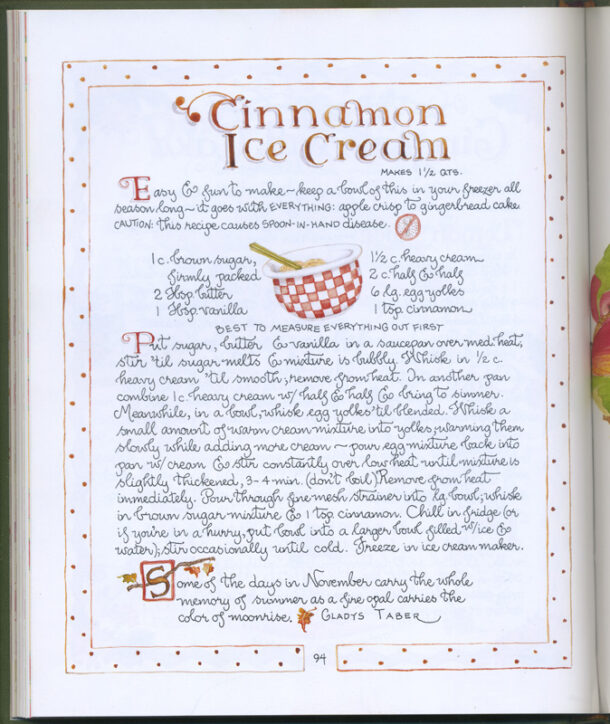 Cinnamon
Ice Cream
MAKES 1 1/2 QTS.
Easy & fun to make ~ keep a bowl of this in your freezer all
season long ~ it goes with EVERYTHING: apple crisp to gingerbread cake.
CAUTION: this recipe causes SPOON-IN-HAND disease.
1 c. brown sugar,
firmly packed
2 tbsp. butter
1 tbsp. vanilla
1 1/2 c. heavy cream
2 c. half & half
6 lg. egg yolks
1 tsp. cinnamon
BEST TO MEASURE EVERYTHING OUT FIRST
Put sugar, butter & vanilla in a saucepan over med. heat;
stir 'til sugar melts & mixture is bubbly. Whisk in 1/2 c.
heavy cream 'til smooth; remove from heat. In another pan
combine 1 c. heavy cream w/ half & half & bring to simmer.
Meanwhile, in a bowl, whisk egg yolks 'til blended. Whisk a
small amount of warm cream mixture into yolks, warming them
slowly while adding more cream ~ pour egg mixture back into
pan w/ cream & stir constantly over low heat until mixture is
slightly thickened, 3-4 min. (don't boil) Remove from heat
immediately. Pour through fine mesh strainer into lg. bowl; whisk
in brown sugar mixture & 1 tsp. cinnamon. Chill in fridge (or
if you're in a hurry, put bowl into a larger bowl filled w/ ice &
water); stir occasionally until cold. Freeze in ice cream maker.
Some of the days in November carry the whole
memory of summer as a fire opal carries the
color of moonrise. GLADYS TABER
94